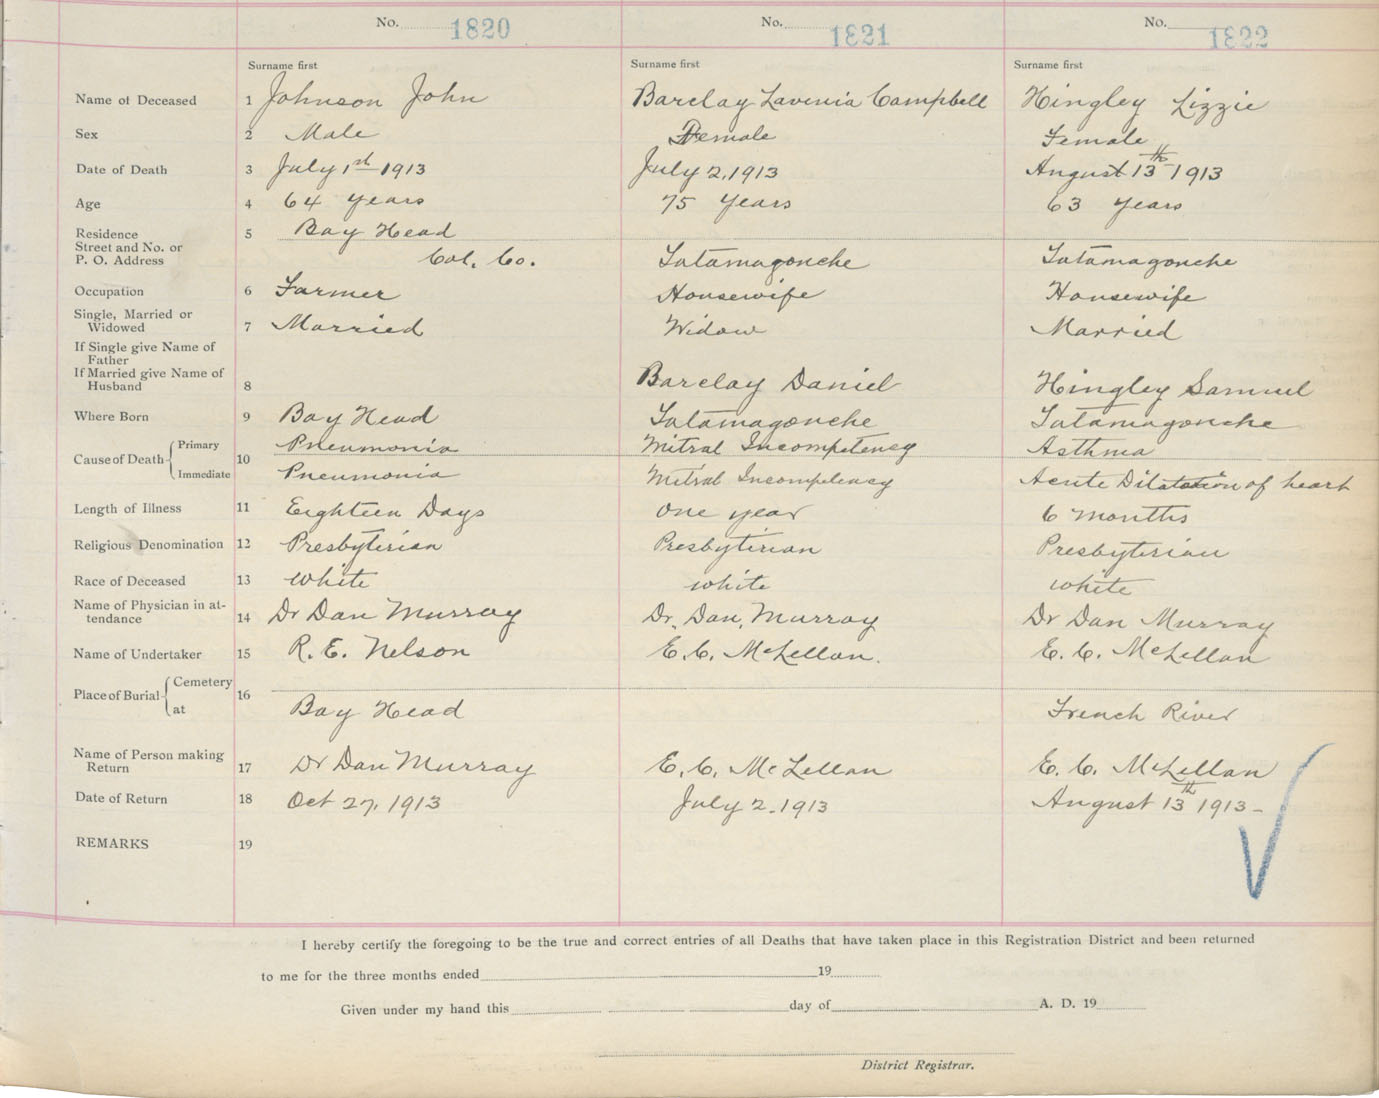 No. 1820 No. 1821 No. 1822
Surname first Surname first Surname first
Name of Deceased 1 Johnson John Barclay Lavinia Campbell Hingley Lizzie
Sex 2 Male Female Female
Date of Death 3 July 1st 1913 July 2, 1913 August 13th 1913
Age 4 64 years 75 years 63 years
Residence 5 Bay Head
Street and No. or
P. O. Address Col. Co. Tatamagouche Tatamagouche
Occupation 6 Farmer Housewife Housewife
Single, Married or
Widowed 7 Married Widow Married
If Single give Name of
Father
If Married give Name of
Husband 8 Barclay Daniel Hingley Samuel
Where Born 9 Bay Head Tatamagouche Tatamagouche
Cause of Death 10 Primary Pneumonia Mitral Incompetency Asthma
Immediate Pneumonia Mitral Incompetency Acute Dilatation of heart
Length of Illness 11 Eighteen Days one year 6 months
Religious Denomination 12 Presbyterian Presbyterian Presbyterian
Race of Deceased 13 white white white
Name of Physician in at-
tendance 14 Dr Dan Murray Dr. Dan. Murray Dr Dan Murray
Name of Undertaker 15 R. E. Nelson E. C. McLellan. E. C. McLellan
Place of Burial 16 Cemetery
at Bay Head French River
Name of Person making
Return 17 Dr Dan Murray E. C. McLellan E. C. McLellan
Date of Return 18 Oct 27, 1913 July 2. 1913 August 13th 1913-
REMARKS 19
I hereby certify the foregoing to be the true and correct entries of all Deaths that have taken place in this Registration District and been returned
to me for the three months ended 19
Given under my hand this day of A. D. 19
District Registrar.